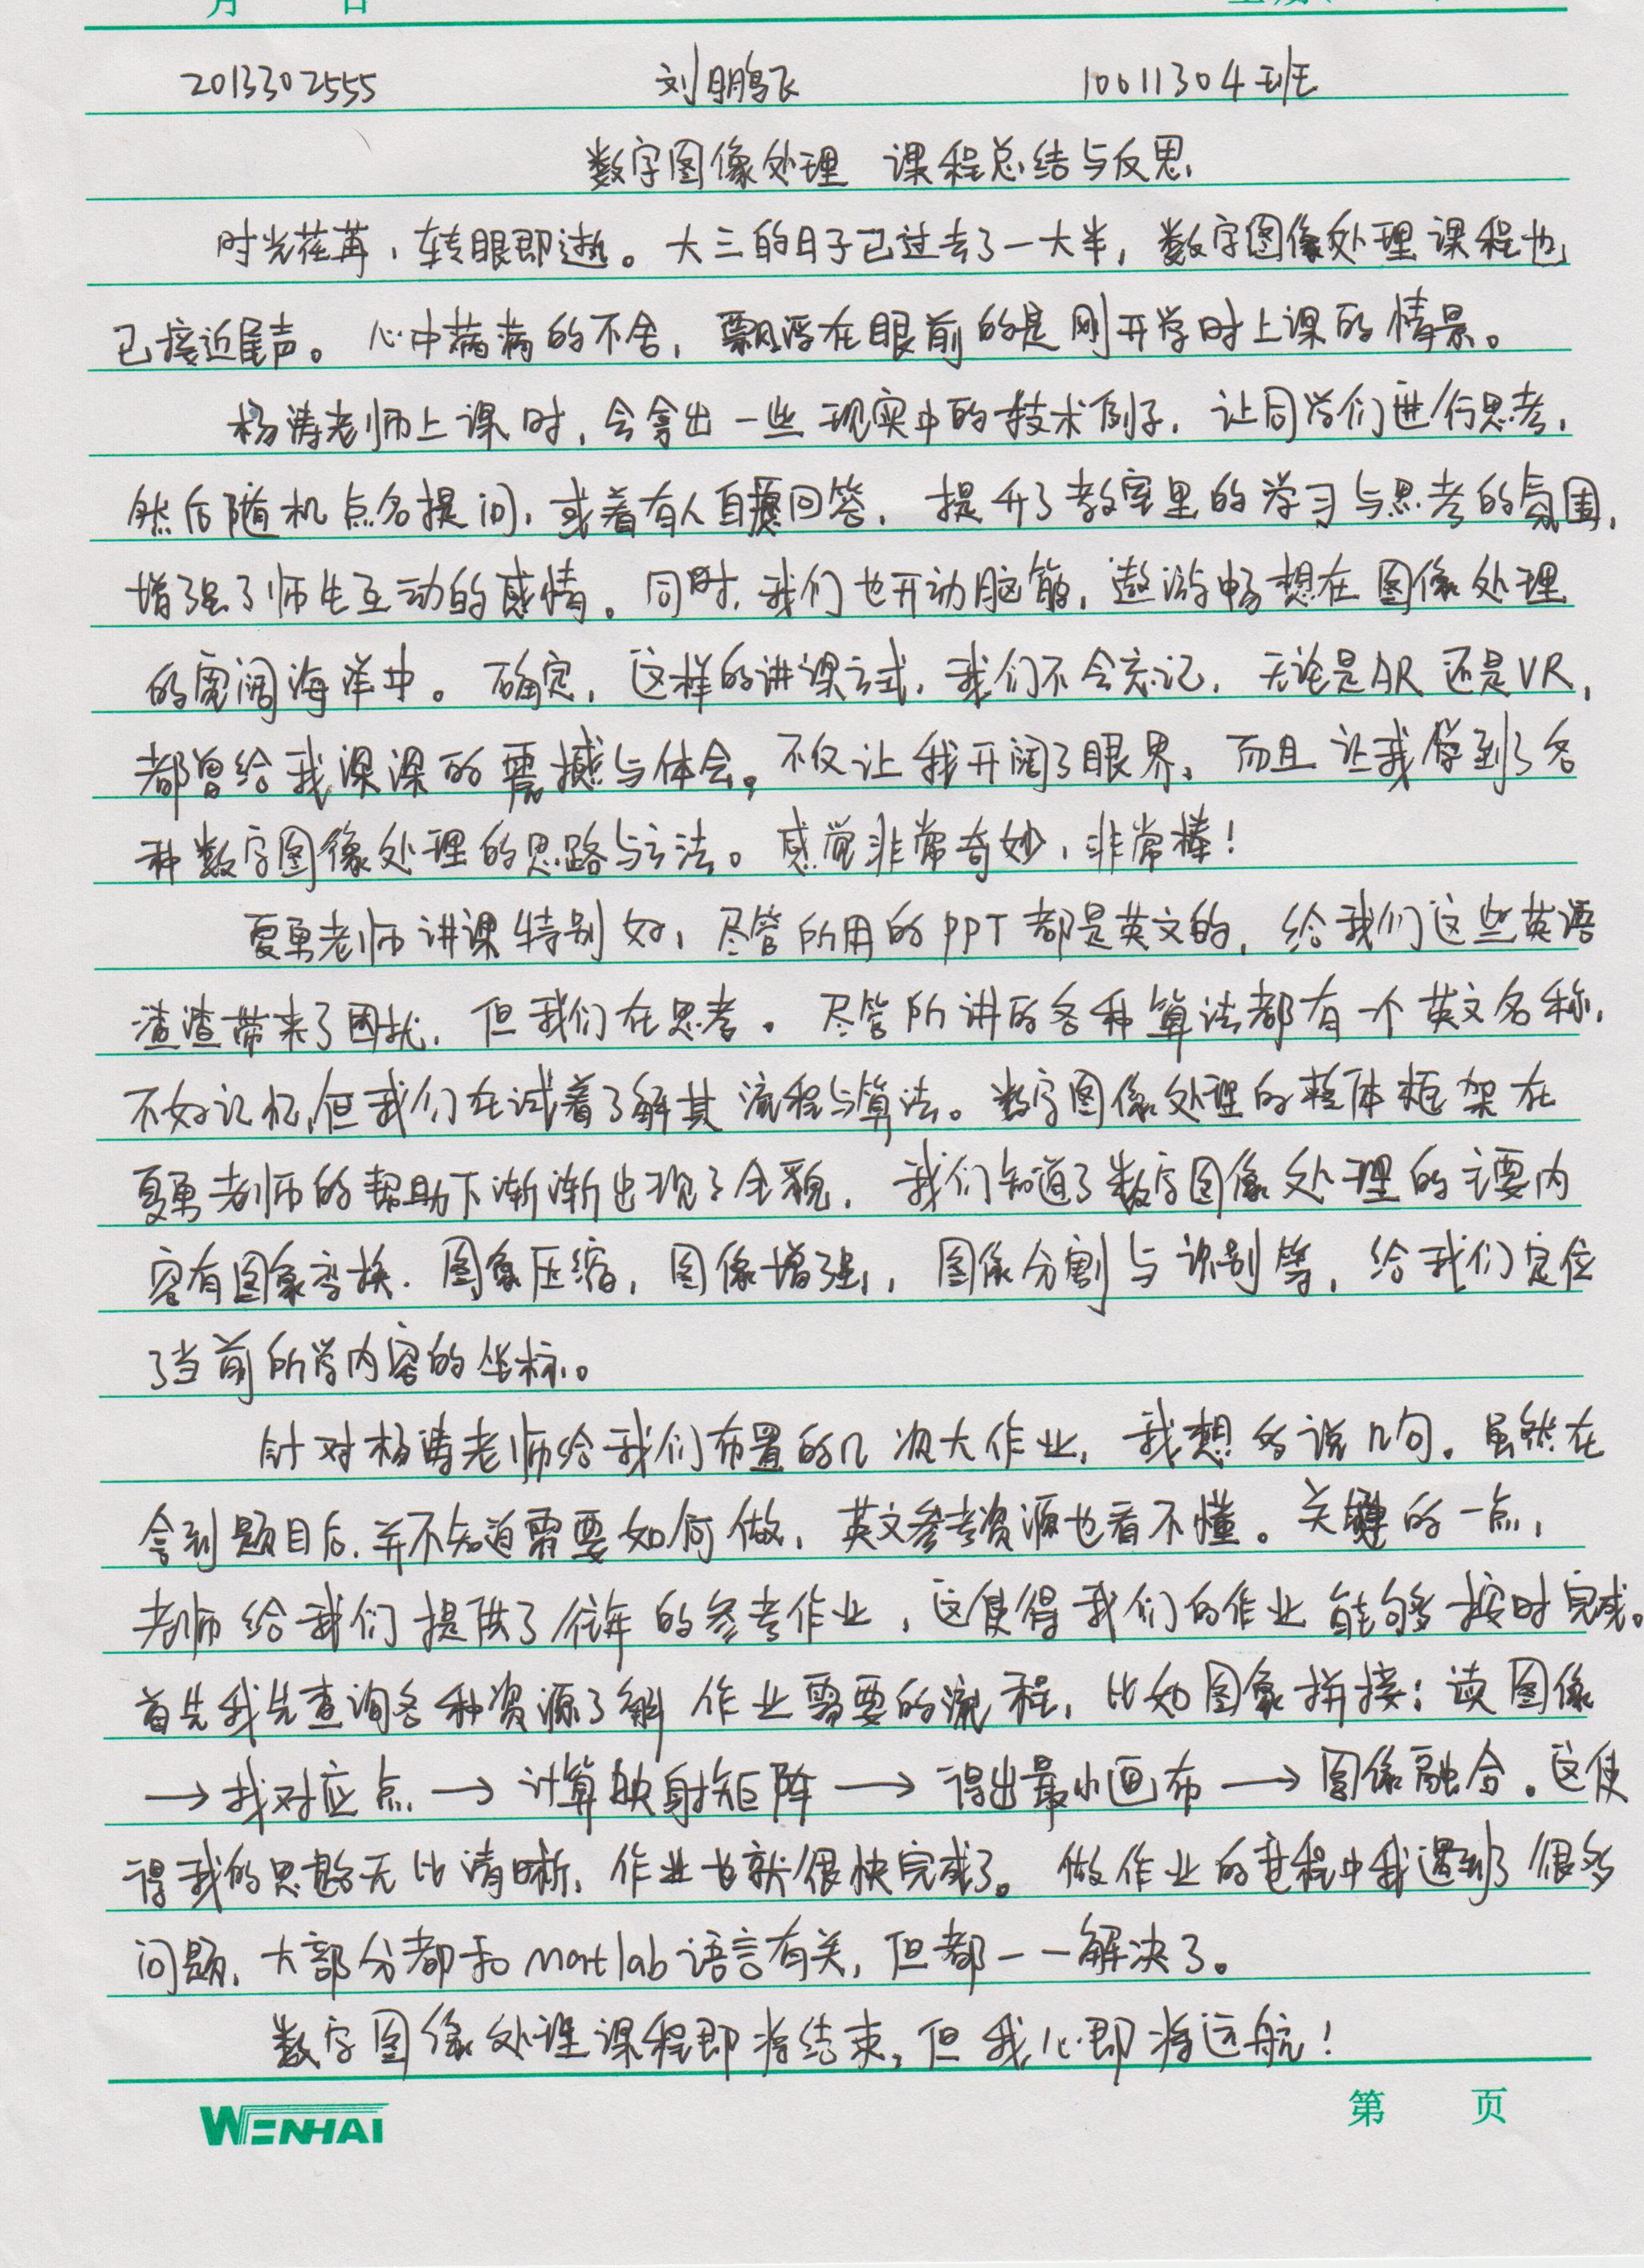 月 日
2013302555 刘鹏飞 10011304班
数字图像处理 课程总结与反思
时光荏苒,转眼即逝。大三的日子已过去了一大半,数字图像处理课程也
已接近尾声。心中满满的不舍,飘浮在眼前的是刚开学时上课的情景。
杨涛老师上课时,会拿出一些现实中的技术例子,让同学们进行思考,
然后随机点名提问,或着有人自愿回答,提升了教室里的学习与思考的氛围,
增强了师生互动的感情。同时,我们也开动脑筋,遨游畅想在图像处理
的宽阔海洋中。确定,这样的讲课方式,我们不会忘记,无论是AR还是VR,
都曾给我深深的震撼与体会。不仅让我开阔了眼界,而且让我学到了各
种数字图像处理的思路与方法。感觉非常奇妙,非常棒!
夏勇老师讲课特别好,尽管所用的PPT都是英文的,给我们这些英语
渣渣带来了困扰,但我们在思考。尽管所讲的各种算法都有一个英文名称,
不好记忆,但我们在试着了解其流程与算法。数字图像处理的整体框架在
夏勇老师的帮助下渐渐出现了全貌,我们知道了数字图像处理的主要内
容有图象变换.图象压缩,图像增强,图像分割与识别等,给我们定位
了当前所学内容的坐标。
针对杨涛老师给我们布置的几次大作业,我想多说几句。虽然在
拿到题目后,并不知道需要如何做,英文参考资源也看不懂。关键的一点,
老师给我们提供了往年的参考作业,这使得我们的作业能够按时完成。
首先我先查询各种资源了解作业需要的流程,比如图象拼接:读图像
→找对应点→计算映射矩阵→得出最小画布→图像融合。这使
得我的思路无比清晰,作业也就很快完成了。做作业的过程中我遇到了很多
问题,大部分都和Matlab语言有关,但都一一解决了。
数字图像处理课程即将结束,但我心即将远航!
WENHAI 第 页